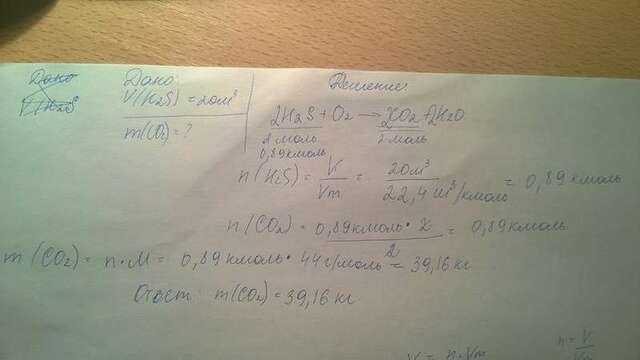 Дано
V(H₂S)
Дано:
V(H₂S) = 20м³
m(CO₂) = ?
Решение:
2H₂S + O₂ → 2CO₂ + 2H₂O
2 моль 2 моль
0,89 кмоль
n(H₂S) = V/Vm = 20м³/22,4 м³/кмоль = 0,89 кмоль
n(CO₂) = 0,89 кмоль · 2/2 = 0,89 кмоль
m(CO₂) = n · M = 0,89 кмоль · 44 г/моль = 39,16 кг
Ответ: m(CO₂) = 39,16 кг
n = V/Vm
V = n · Vm